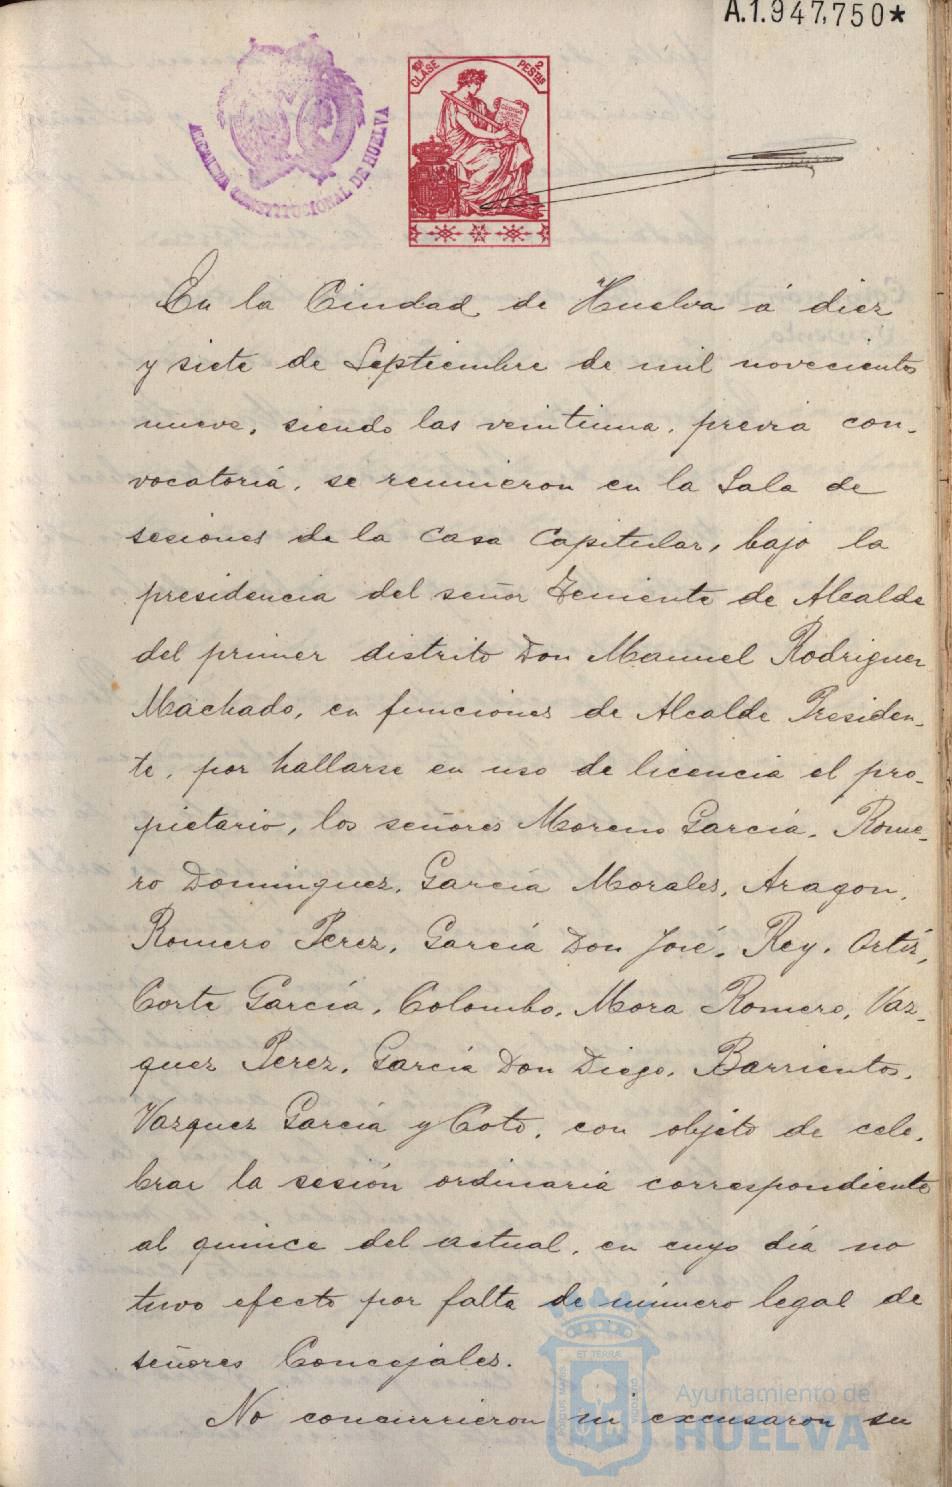 A.1.947,750*
10ª CLASE
2 PESTAS
ALCALDIA CONSTITUCIONAL DE HUELVA
En la Ciudad de Huelva á diez
y siete de Septiembre de mil novecientos
nueve, siendo las veintiuna, previa con-
vocatoria, se reunieron en la Sala de
sesiones de la Casa Capitular, bajo la
presidencia del señor Teniente de Alcalde
del primer distrito Don Manuel Rodriguez
Machado, en funciones de Alcalde Presiden-
te, por hallarse en uso de licencia el pro-
pietario, los señores Moreno García, Rome-
ro Dominguez, García Morales, Aragon,
Romero Perez, García Don José, Rey, Ortiz,
Corte García, Colombo, Mora Romero, Vaz-
quez Perez, García Don Diego, Barrientos,
Vazquez García y Coto, con objeto de cele-
brar la sesión ordinaria correspondiente
al quince del actual, en cuyo día no
tuvo efecto por falta de número legal de
señores Concejales.
No concurrieron ni excusaron su
ET TERRÆ
PORTUS MARIS
CUSTODIA
Ayuntamiento de
HUELVA